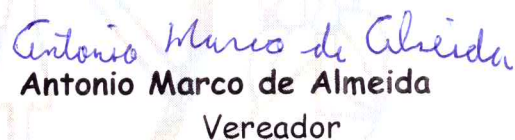 Antonio Marco de Almeida
Antonio Marco de Almeida
Vereador